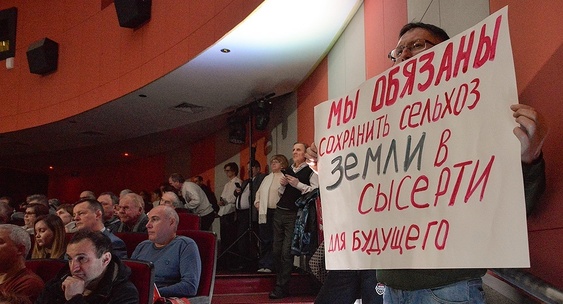 МЫ ОБЯЗАНЫ
СОХРАНИТЬ СЕЛЬХОЗ
ЗЕМЛИ В
СЫСЕРТИ
ДЛЯ БУДУЩЕГО